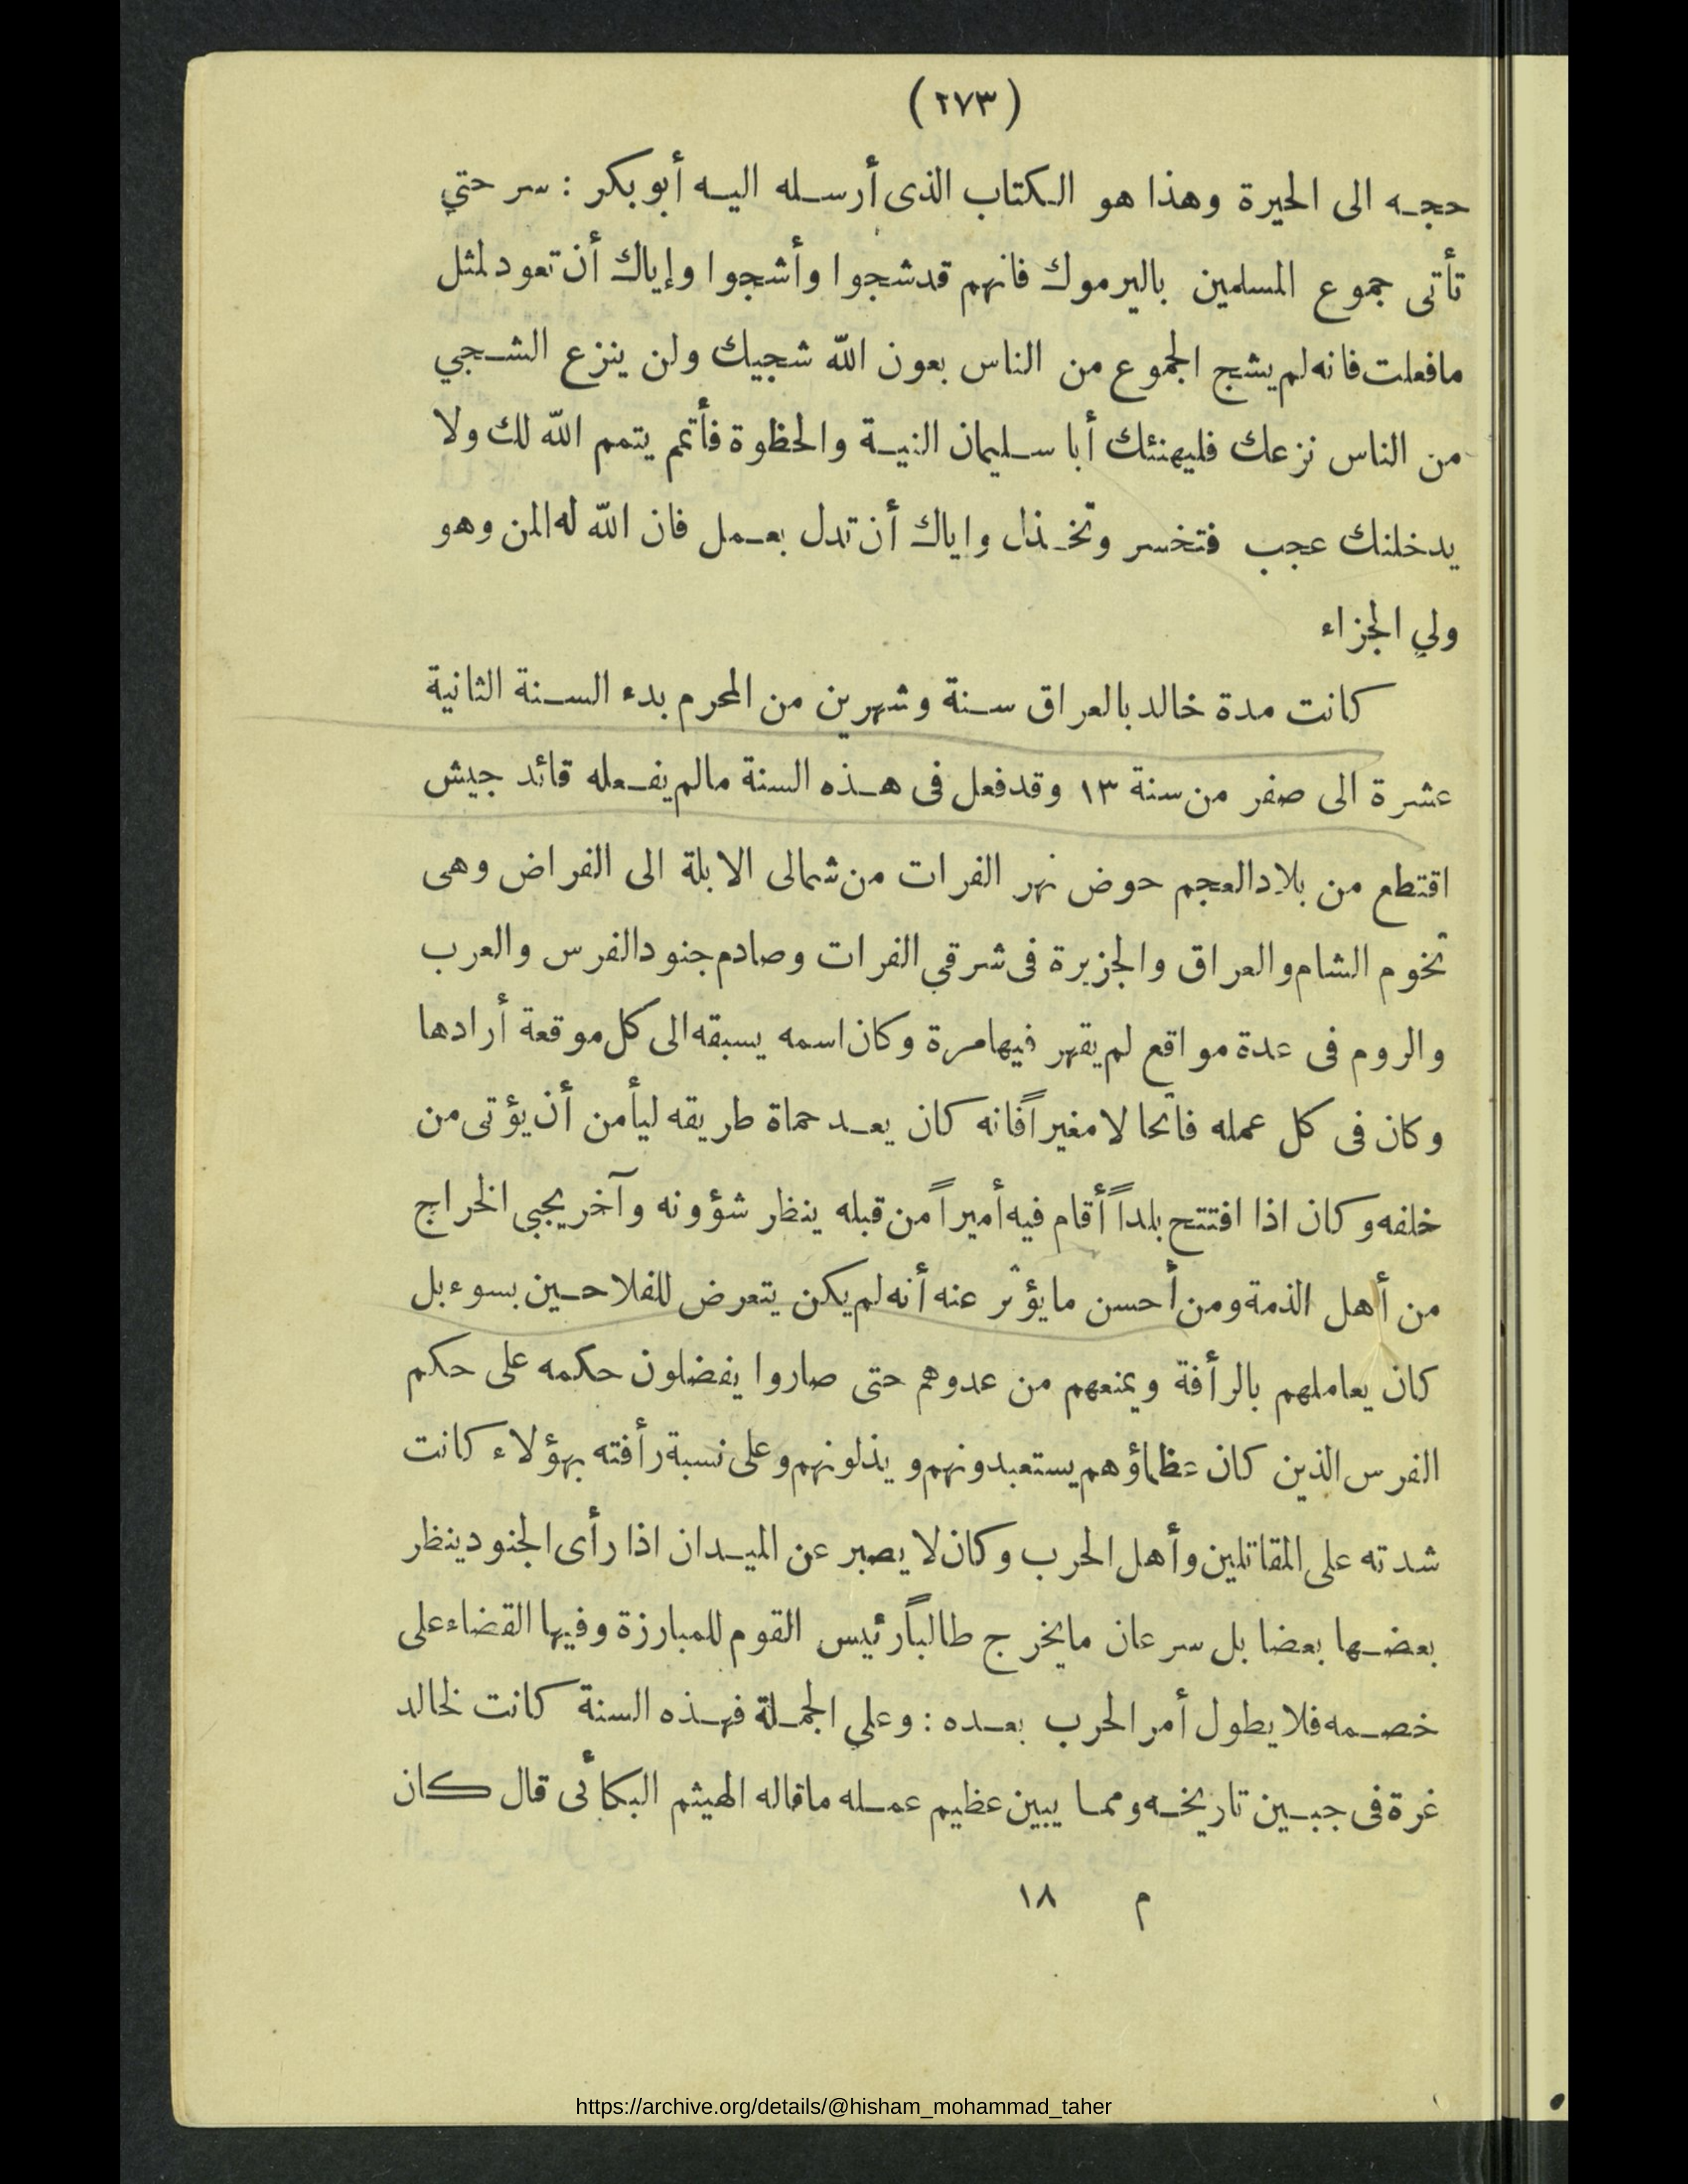 (٢٧٣)
حجـه الى الحيرة وهذا هو الـكتاب الذى أرسـله اليـه أبو بكر : سر حتي
تأتى جموع المسلمين باليرموك فانهم قد شجوا وأشجوا وإياك أن تعود لمثل
مافعلت فانه لم يشج الجموع من الناس بعون الله شجيك ولن ينزع الشـجي
من الناس نزعك فليهنئك أبا سـليمان النيـة والحظوة فأتمم يتمم الله لك ولا
يدخلنك عجب فتخسر وتخـذل واياك أن تدل بعـمل فان الله له المن وهو
ولي الجزاء
كانت مدة خالد بالعراق سـنة وشهرين من المحرم بدء السـنة الثانية
عشرة الى صفر من سنة ١٣ وقد فعل فى هـذه السنة مالم يفـعله قائد جيش
اقتطع من بلاد العجم حوض نهر الفرات من شمالى الابلة الى الفراض وهى
تخوم الشام والعراق والجزيرة فى شرقي الفرات وصادم جنود الفرس والعرب
والروم فى عدة مواقع لم يقهر فيها مرة وكان اسمه يسبقه الى كل موقعة أرادها
وكان فى كل عمله فاتحا لا مغيراً فانه كان يعـد حماة طريقه ليأمن أن يؤتى من
خلفه وكان اذا افتتح بلداً أقام فيه أميراً من قبله ينظر شؤونه وآخر يجبى الخراج
من أهل الذمة ومن أحسن ما يؤثر عنه أنه لم يكن يتعرض للفلاحـين بسوء بل
كان يعاملهم بالرأفة ويمنعهم من عدوهم حتى صاروا يفضلون حكمه على حكم
الفرس الذين كان عظماؤهم يستعبدونهم ويذلونهم وعلى نسبة رأفته بهؤلاء كانت
شدته على المقاتلين وأهل الحرب وكان لا يصبر عن الميـدان اذا رأى الجنود ينظر
بعضـها بعضا بل سرعان ما يخرج طالباً رئيس القوم للمبارزة وفيها القضاء على
خصـمه فلا يطول أمر الحرب بعـده : وعلي الجمـلة فهـذه السنة كانت لخالد
غرة فى جبـين تاريخـه وممـا يبين عظيم عمـله ماقاله الهيثم البكائى قال كان
م ١٨
https://archive.org/details/@hisham_mohammad_taher